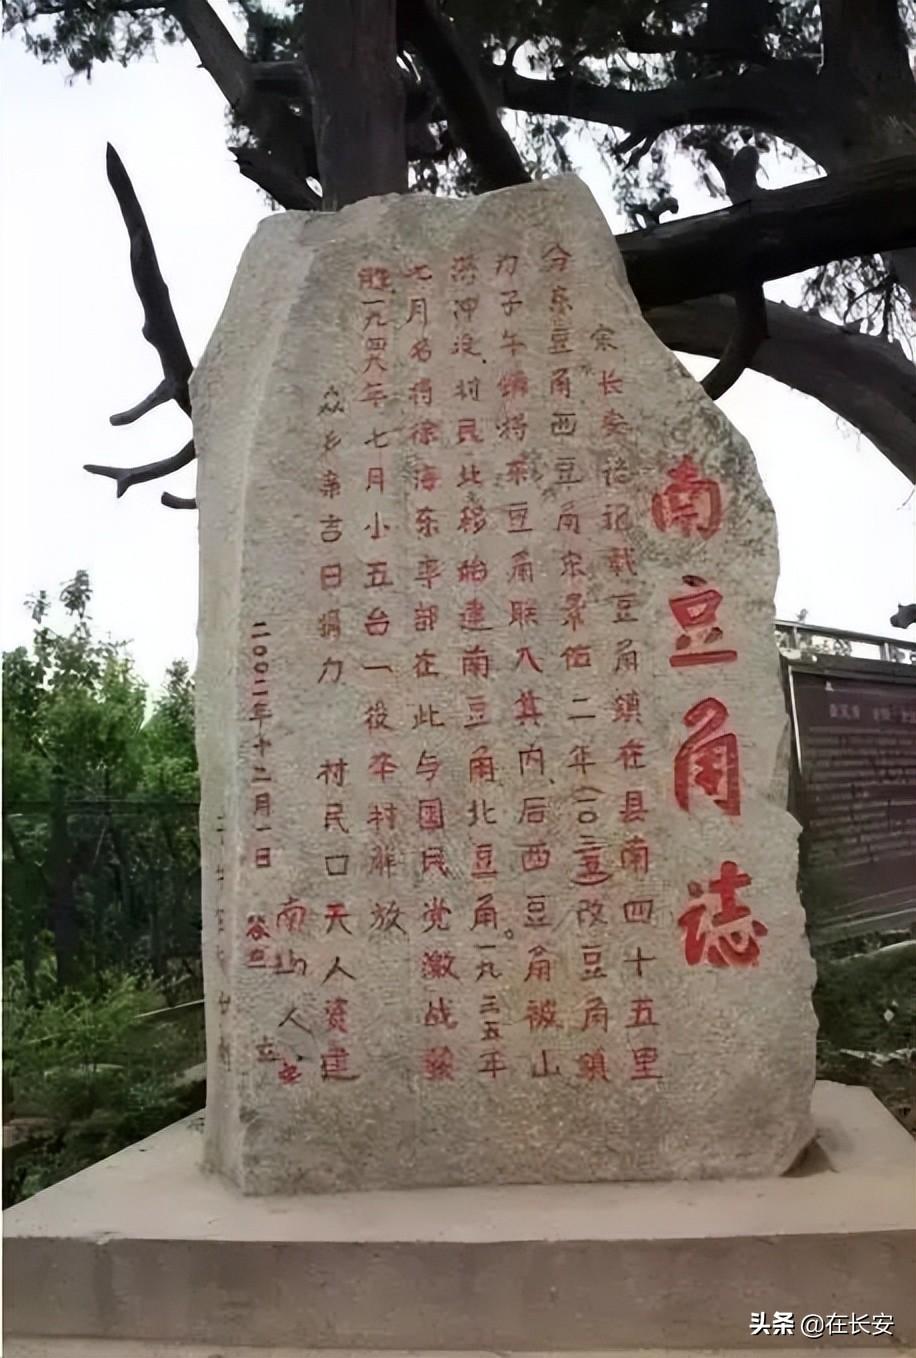 南豆角誌
宋长安志记载豆角鎮在县南四十五里
分东豆角西豆角宋景佑二年(一0三五)改豆角鎮
为子午镇将东豆角联入其内、后西豆角被山
洪冲没、村民北移始建南豆角北豆角。一九三五年
七月名将徐海东率部在此与国民党激战获
胜一九四八年七月小五台一役卒村解放
众乡亲吉日捐力 村民口天人资建
南山人
二00二年十二月一日 立
头条 @在长安